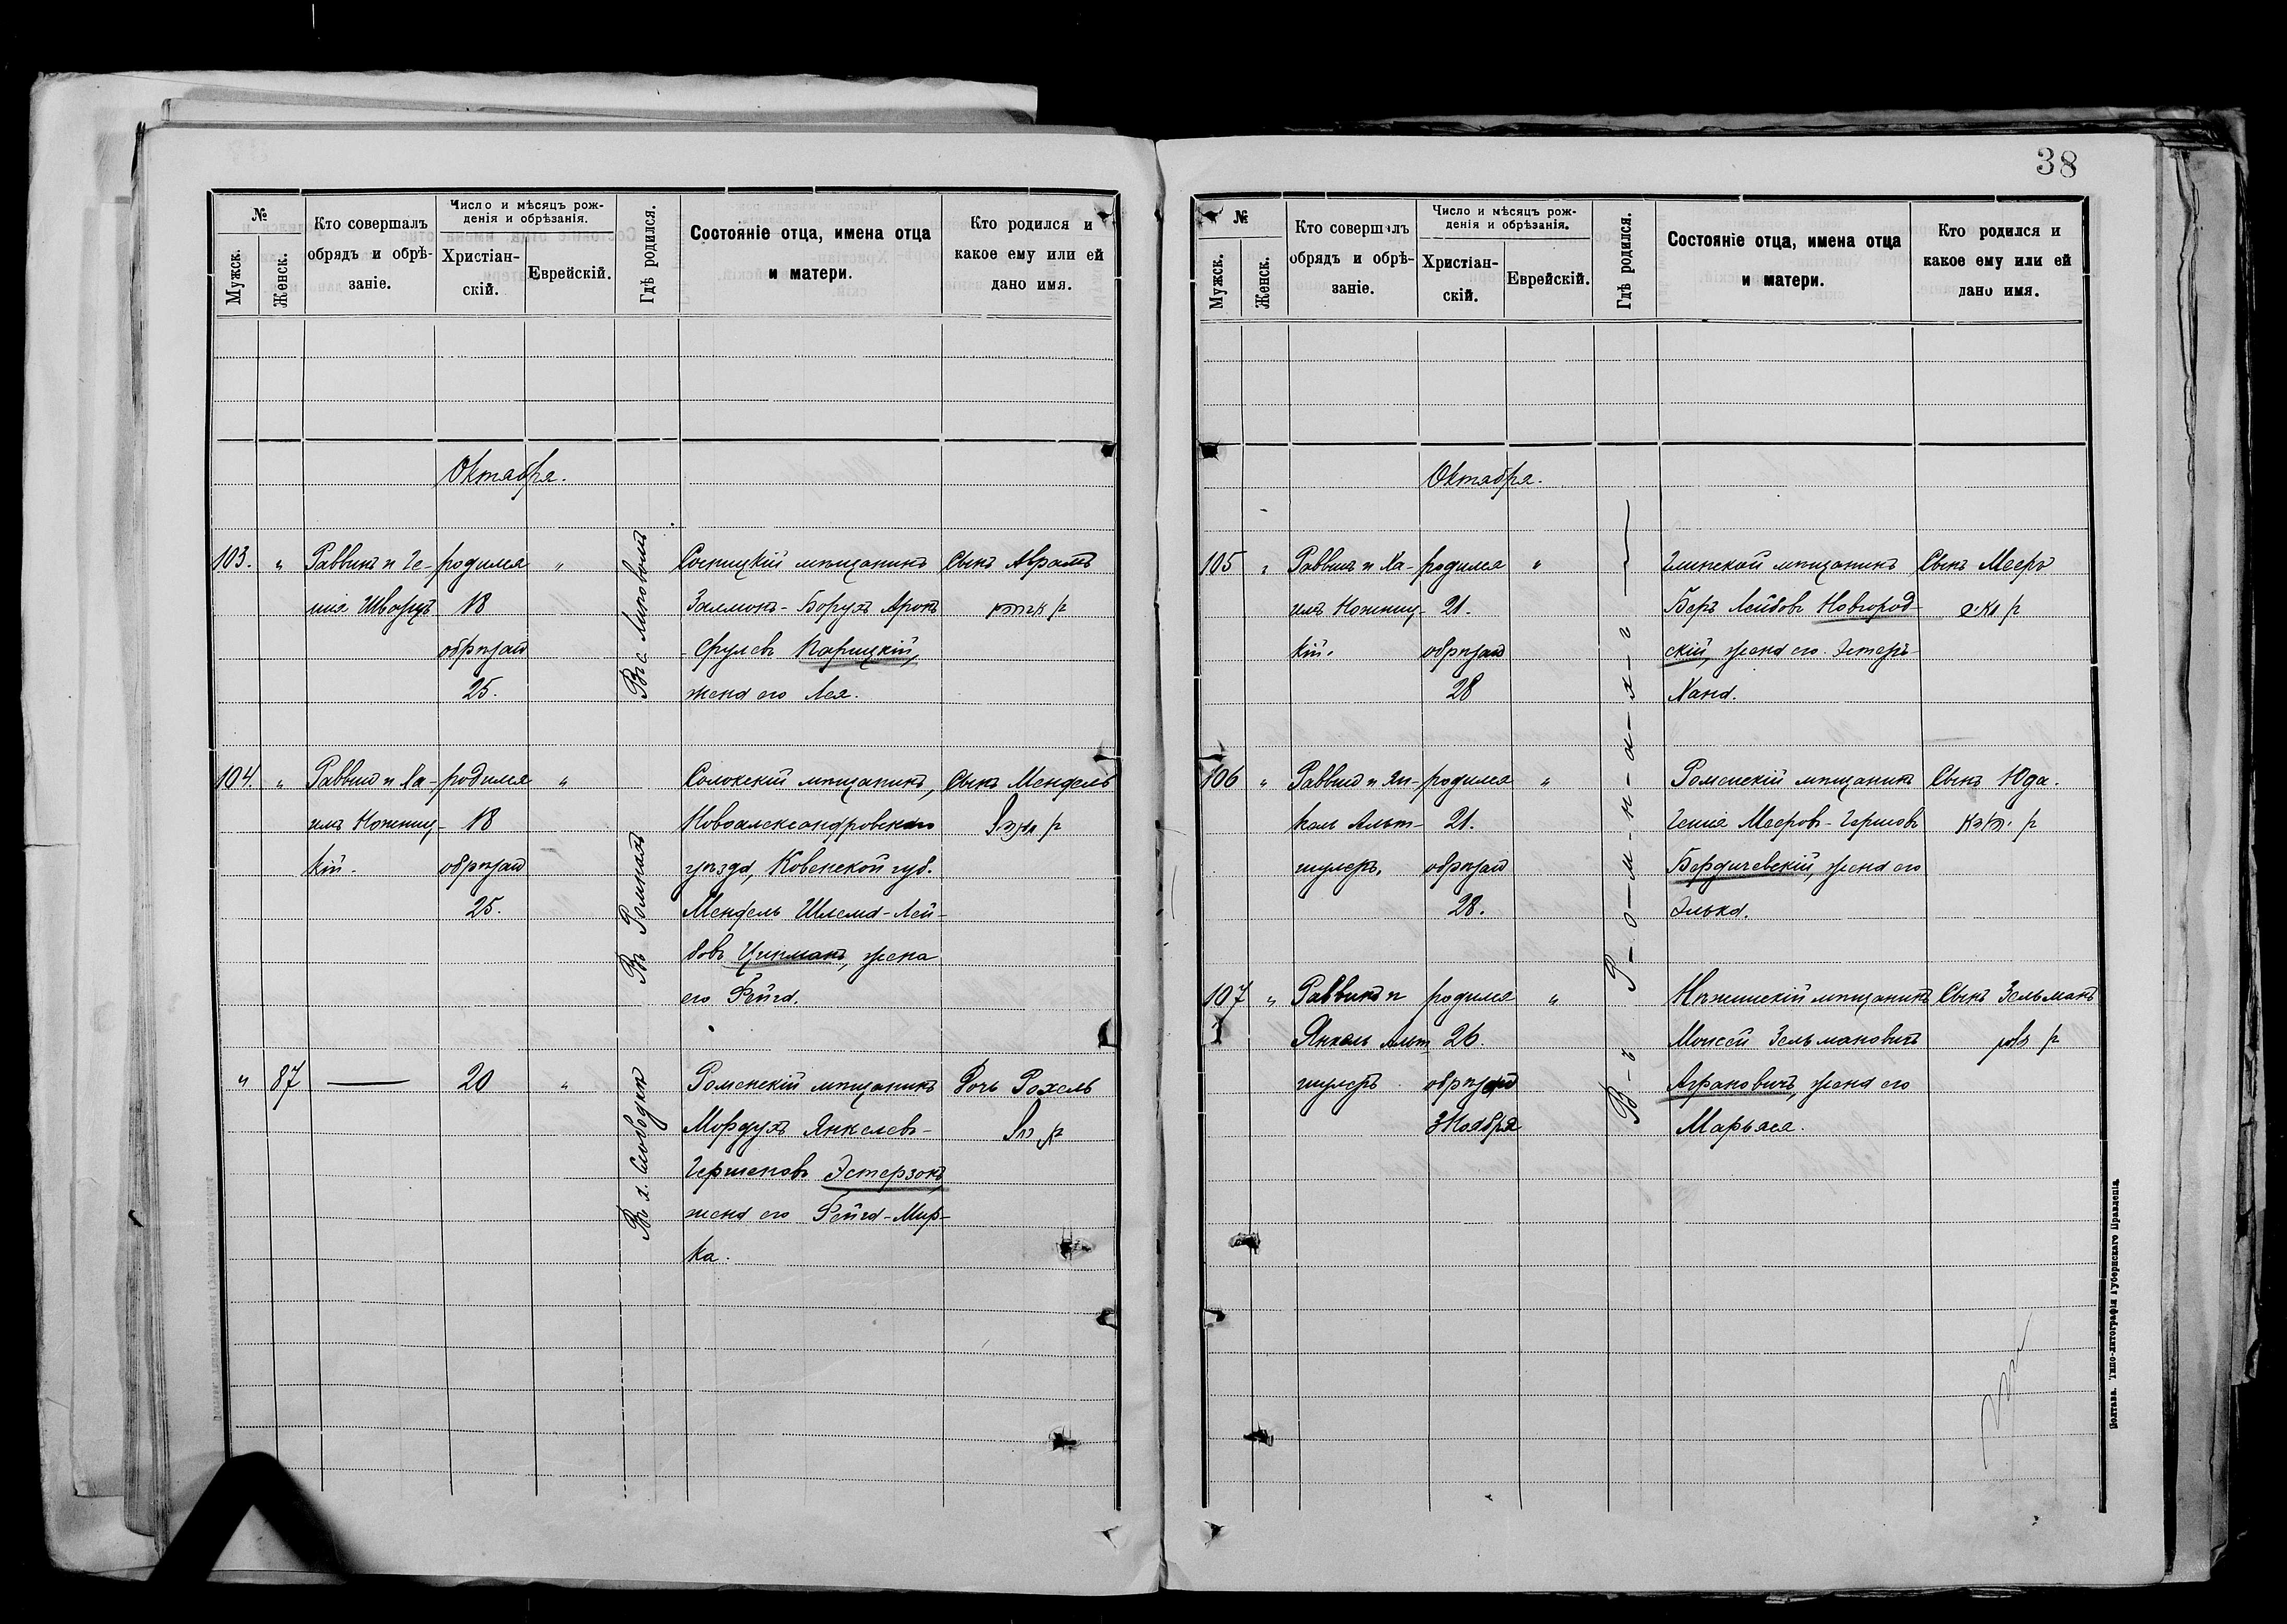 №
Мужск.
Женск.
Кто совершалъ
обрядъ и обрѣ-
заніе.
Число и мѣсяцъ рож-
денія и обрѣзанія.
Христіан-
скій.
Еврейскій.
Гдѣ родился.
Состояніе отца, имена отца
и матери.
Кто родился и
какое ему или ей
дано имя.
Октября.
103. " Раввинъ и Ге-
ния Шварцъ
родился
18
обрѣзан
25.
"
Въ с. Липовомъ
Сосницкій мѣщанинъ
Залмонъ-Борухъ Аронъ
-Срулевъ Карицкій,
жена его Лея.
Сынъ Абрамъ
104. " Раввин и Ха-
имъ Ножниц-
кій.
родился
18
обрѣзан
25.
"
Въ Ромнахъ
Солокскій мѣщанинъ,
Новоалександровскаго
уѣзда, Ковенской губ.
Мендель Шлема-Лей-
бовъ Ципманъ, жена
его Фейга.
Сынъ Мендель
" 87
20
"
Въ х. Слободки
Роменскій мѣщанинъ
Мордухъ Янкелевъ-
Гершеновъ Эстерзонъ,
жена его Фейга-Мир-
ка.
Дочь Рохель
38
№
Мужск.
Женск.
Кто совершалъ
обрядъ и обрѣ-
заніе.
Число и мѣсяцъ рож-
денія и обрѣзанія.
Христіан-
скій.
Еврейскій.
Гдѣ родился.
Состояніе отца, имена отца
и матери.
Кто родился и
какое ему или ей
дано имя.
Октября.
В-ъ Р-о-м-н-а-х-ъ
105 " Раввинъ и Ха-
имъ Ножниц-
кій.
родился
21.
обрѣзан
28
"
Глинской мѣщанинъ
Беръ Лейбовъ Новгород-
скій, жена его Эстеръ-
Хана.
Сынъ Мееръ
106 " Раввин и Ян-
кель Альт-
шулеръ.
родился
21.
обрѣзан
28.
"
Роменскій мѣщанинъ
Гения Мееровъ-Гершовъ
Бердичевскій, жена его
Элька.
Сынъ Юда.
107 " Раввинъ и
Янкель Альт
шулеръ
родился
26.
обрѣзан
3 Ноября
"
Нѣжинскій мѣщанинъ
Моисей Зельмановичъ
Аграновичъ, жена его
Марьяся.
Сынъ Зельманъ
Полтава. Типо-литографія Губернскаго Правленія.